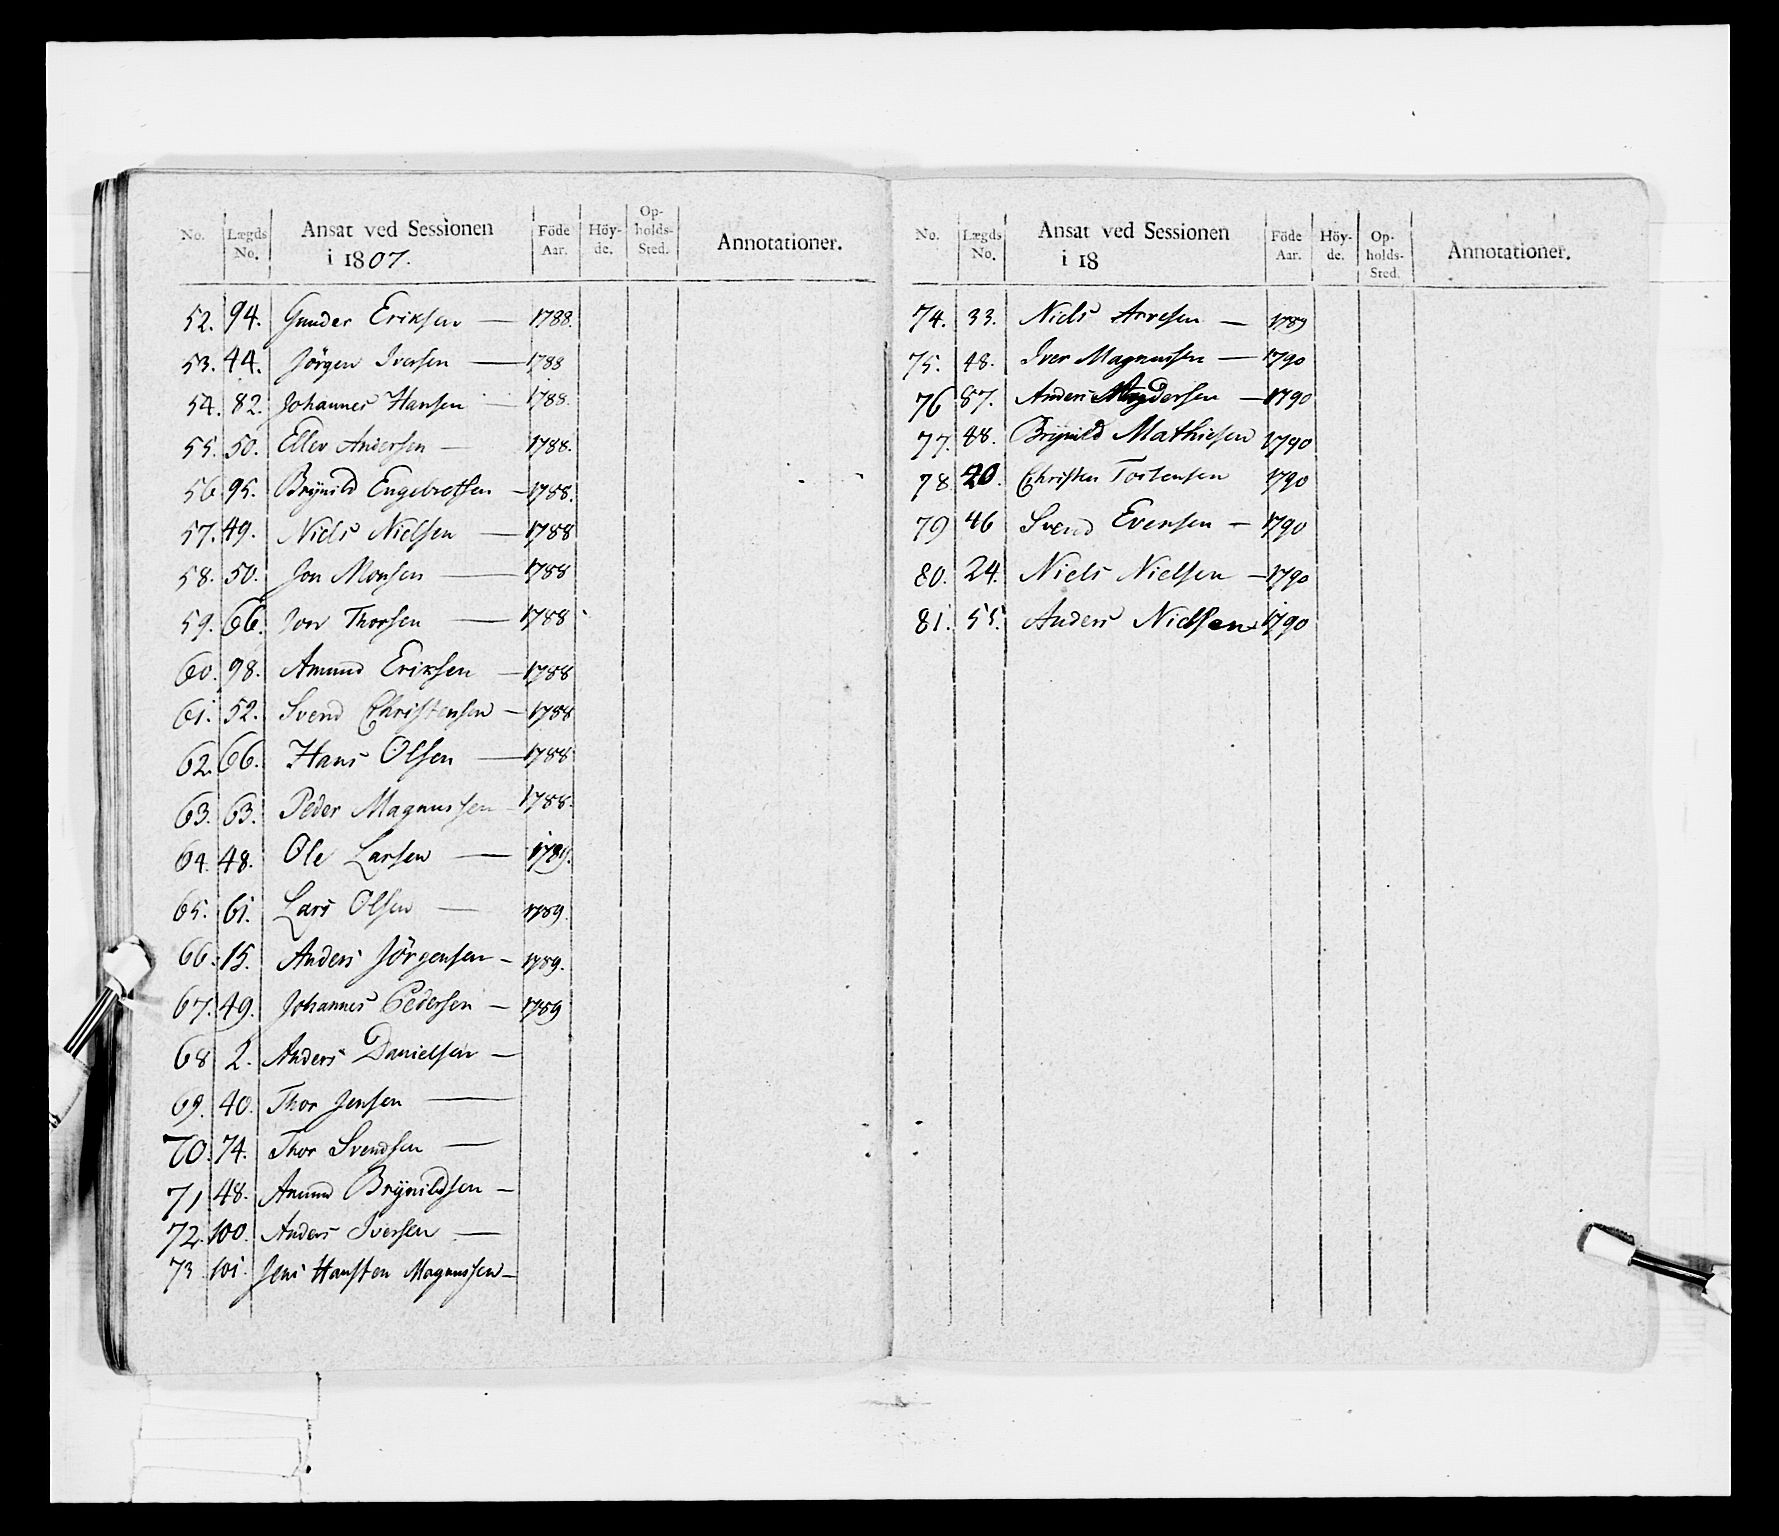 No. | Lægds No. | Ansat ved Sessionen i 1807. | Föde Aar. | Höy-de. | Op-holds-Sted. | Annotationer.
52. 94. Gunder Eriksen — 1788.
53. 44. Jörgen Iversen — 1788
54. 82. Johannes Hansen — 1788.
55. 50. Ellev Andersen — 1788.
56 95. Brynild Engebretsen — 1788.
57. 49. Niels Nielsen — 1788
58. 50. Jon Monsen — 1788
59. 66. Jon Thorsen — 1788
60. 98. Amund Eriksen — 1788
61. 52. Svend Christensen — 1788
62. 66. Hans Olsen — 1788
63. 63. Peder Magnussen — 1788.
64. 48. Ole Larsen — 1789.
65. 61. Lars Olsen — 1789.
66. 15. Anders Jörgensen — 1789.
67. 49. Johannes Pedersen — 1789
68 2. Anders Danielsen —
69. 40. Thor Jensen —
70. 74. Thor Svendsen —
71 48. Amund Brynildsen —
72. 100. Anders Iversen —
73 101. Jens Hansten Magnussen —
No. | Lægds No. | Ansat ved Sessionen i 18 | Föde Aar. | Höy-de. | Op-holds-Sted. | Annotationer.
74. 33. Niels Arvesen — 1789
75. 48. Iver Magnussen — 1790
76 87. Anders Andersen — 1790
77. 48. Brynild Mathiesen 1790
78 20. Christen Torstensen 1790
79 46 Svend Evensen — 1790
80. 24. Niels Nielsen — 1790
81. 55. Anders Nielsen 1790